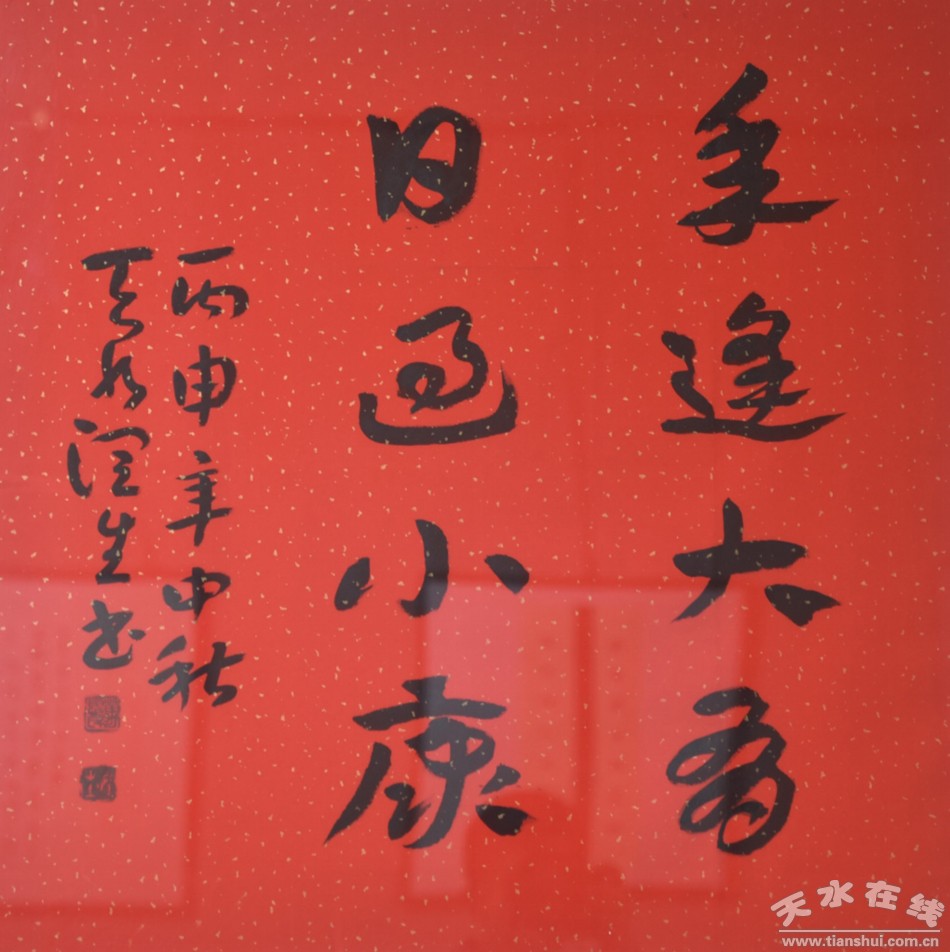 年逢大有
日过小康
丙申年中秋
天水润生书
天水在线
www.tianshui.com.cn